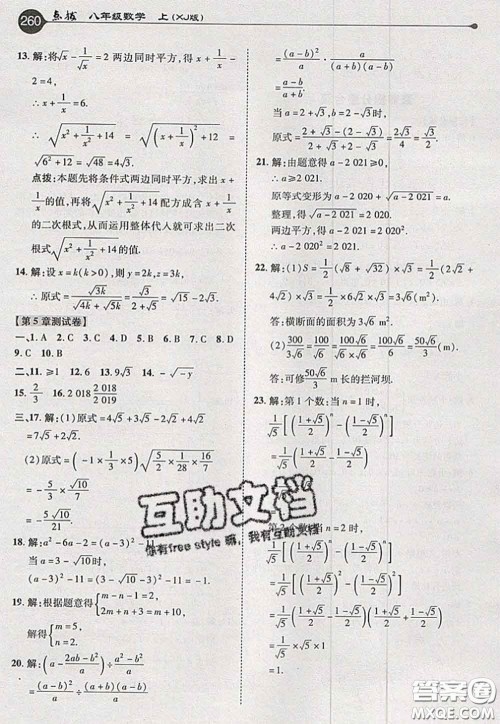 260 点拨 八年级数学 上(XJ版)
13. 解:将√x+1/√x=2 两边同时平方,得 x+1/x-
2.
∴ x+1/x=6.
∴ √(x²+1/x²+14) = √((x+1/x)²+12) =
√(6²+12)=√48=4√3.
点拨:本题先将条件式两边同时平方,求出 x+
1/x的值,再将√(x²+1/x²+14)配方成含有 x+1/x
的二次根式,从而运用整体代入就可以求出二
次根式√(x²+1/x²+14)的值.
14. 解:设 x=k(k>0),则 y=4k,z=5k,
∴ 原式=√3k/(√4k+√5k)=√3/(√4+√5)=√15-2√3.
【第5章测试卷】
一、1. C 2. A 3. C 4. D 5. D 6. D 7. D 8. D
9. C 10. B
二、11. ≥1 12. 2√3 13. 6√2 14. -√(-y)
15. 2/3 16. 2 018 2 018/2 019
三、17. 解:(1)原式=4√5+3√5-2√2+4√2
=7√5+2√2.
(2)原式=(-1×1/5×5)√(5×1/28×16/7)
=-5/7√(5/3)
=-5√10/21.
18. 解:a²-6a-2=(a-3)²-11.
当 a=3-√10时,
(a-3)²-11=(-√10)²-11=-1.
19. 解:根据题意得{m-n-1=2,
2m+n+3=m+10,
解得{m=5,
n=2.
20. 解:(a-(2ab-b²)/a)÷(a²-b²)/a
=(a²/a-(2ab-b²)/a)÷(a²-b²)/a
=(a-b)²/a·a/((a-b)(a+b))
=(a-b)/(a+b).
当 a=2+√3,b=2-√3时,
原式=(2+√3-(2-√3))/(2+√3+2-√3)=2√3/4=√3/2.
21. 解:由题意得 a-2 021≥0,
∴ a≥2 021.
原等式变形为 a-2 020+√(a-2 021)=a.
整理,得√(a-2 021)=2 020.
两边平方,得 a-2 021=2 020²,
∴ a-2 020²=2 021.
22. 解:(1)S=1/2(√8+√32)×√3=1/2(2√2+
4√2)×√3=1/2×6√2×√3=3√6(m²).
答:横断面的面积为 3√6 m².
(2)300/3√6=100/√6=100√6/(√6×√6)=100√6/6=50√6/3(m).
答:可修50√6/3 m 长的拦河坝.
23. 解:第1个数:当 n=1 时,
1/√5[((1+√5)/2)ⁿ-((1-√5)/2)ⁿ]
=1/√5((1+√5)/2-(1-√5)/2)
=1/√5×√5
=1.
第2个数:当 n=2 时,
1/√5[((1+√5)/2)ⁿ-((1-√5)/2)ⁿ]
=1/√5[((1+√5)/2)²-((1-√5)/2)²]
=1/√5×((1+√5)/2+(1-√5)/2)((1+√5)/2-(1-√5)/2)
=1/√5×1×√5
=1.
互助文档
你有free style 嘛,我有互助文档
答案圈
MXQE.COM